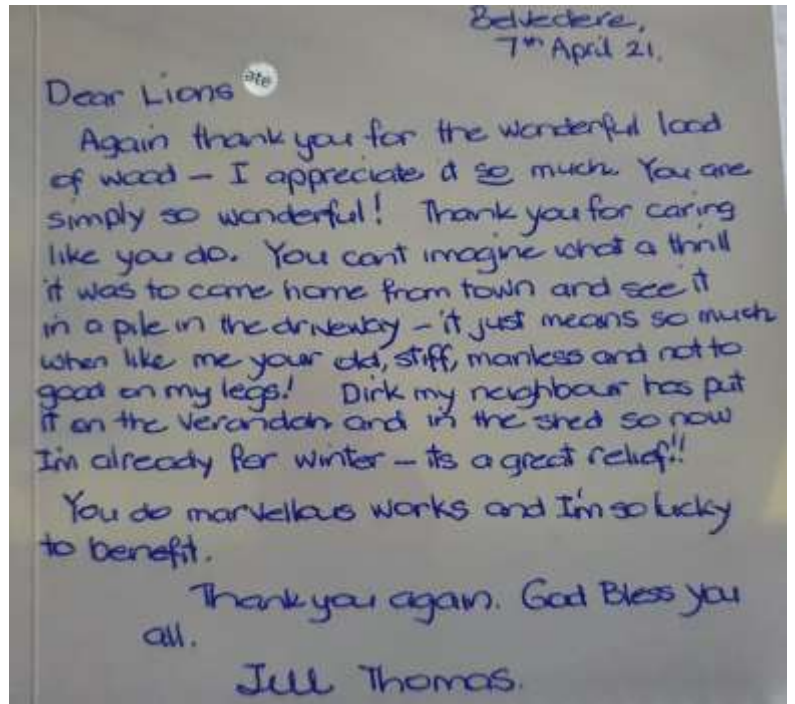 Belvedere,
7th April 21.
Dear Lions
ate
Again thank you for the wonderful load
of wood – I appreciate it so much. You are
simply so wonderful! Thank you for caring
like you do. You cant imagine what a thrill
it was to come home from town and see it
in a pile in the driveway – it just means so much
when like me your old, stiff, manless and not to
good on my legs! Dirk my neighbour has put
it on the verandah and in the shed so now
I'm already for winter – its a great relief!!
You do marvellous works and I'm so lucky
to benefit.
Thank you again. God Bless you
all.
Jill Thomas.